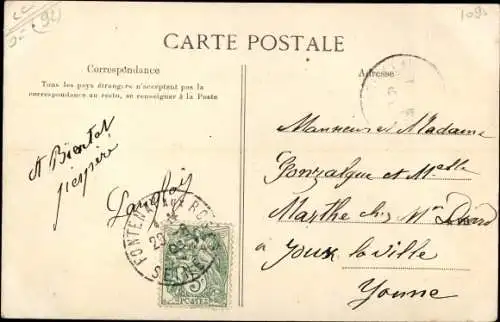 1095
CARTE POSTALE
Correspondance
Tous les pays étrangers n'acceptent pas la
correspondance au recto, se renseigner à la Poste
Adresse
A Bientot
j'espère
Langlois
FONTENAY AUX ROSES
SEINE
5
POSTES
Monsieur et Madame
Gonzalgue et Melle
Marthe chez Mr
à Joux la Ville
Yonne